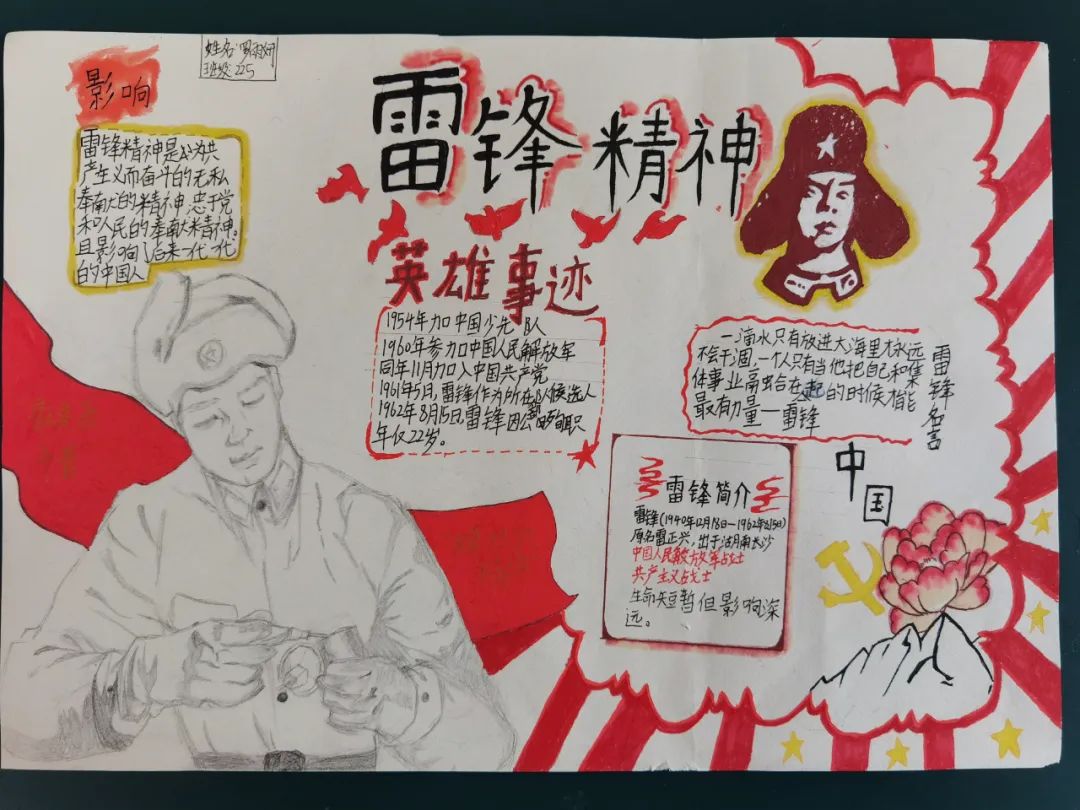 影响
姓名:罗雨妍
班级:225
雷锋精神
雷锋精神是为共
产主义而奋斗的无私
奉献的精神,忠于党
和人民的奉献精神。
且影响了后来一代代
的中国人
英雄事迹
1954年加中国少先队
1960年参加中国人民解放军
同年11月加入中国共产党
1961年5日,雷锋作为所在队候选人
1962年8月15日,雷锋因公殉职
年仅22岁。
一滴水只有放进大海里才永远
不会干涸,一个人只有当他把自己和集
体事业融合在一起的时候才能
最有力量—雷锋
雷锋名言
雷锋简介
雷锋(1940年12月18日—1962年8月15日)
原名雷正兴,出于湖南长沙
中国人民解放军战士
共产主义战士
生命短暂但影响深
远。
中国